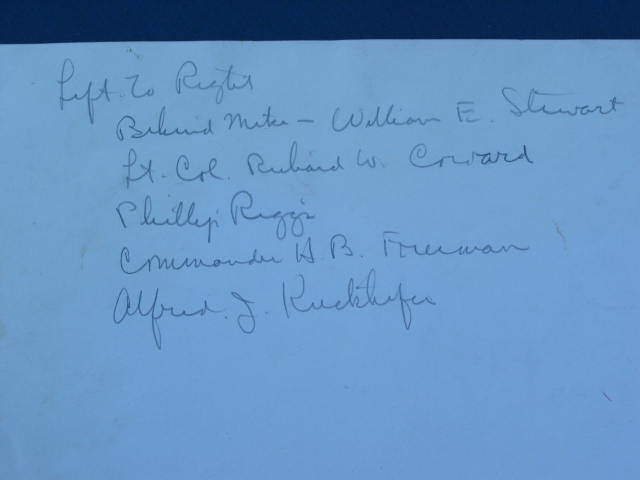 Left to Right
Behind Mike - William E. Stewart
Lt. Col. Richard W. Coward
Phillip Riggs
Commander H. B. Freeman
Alfred. J.